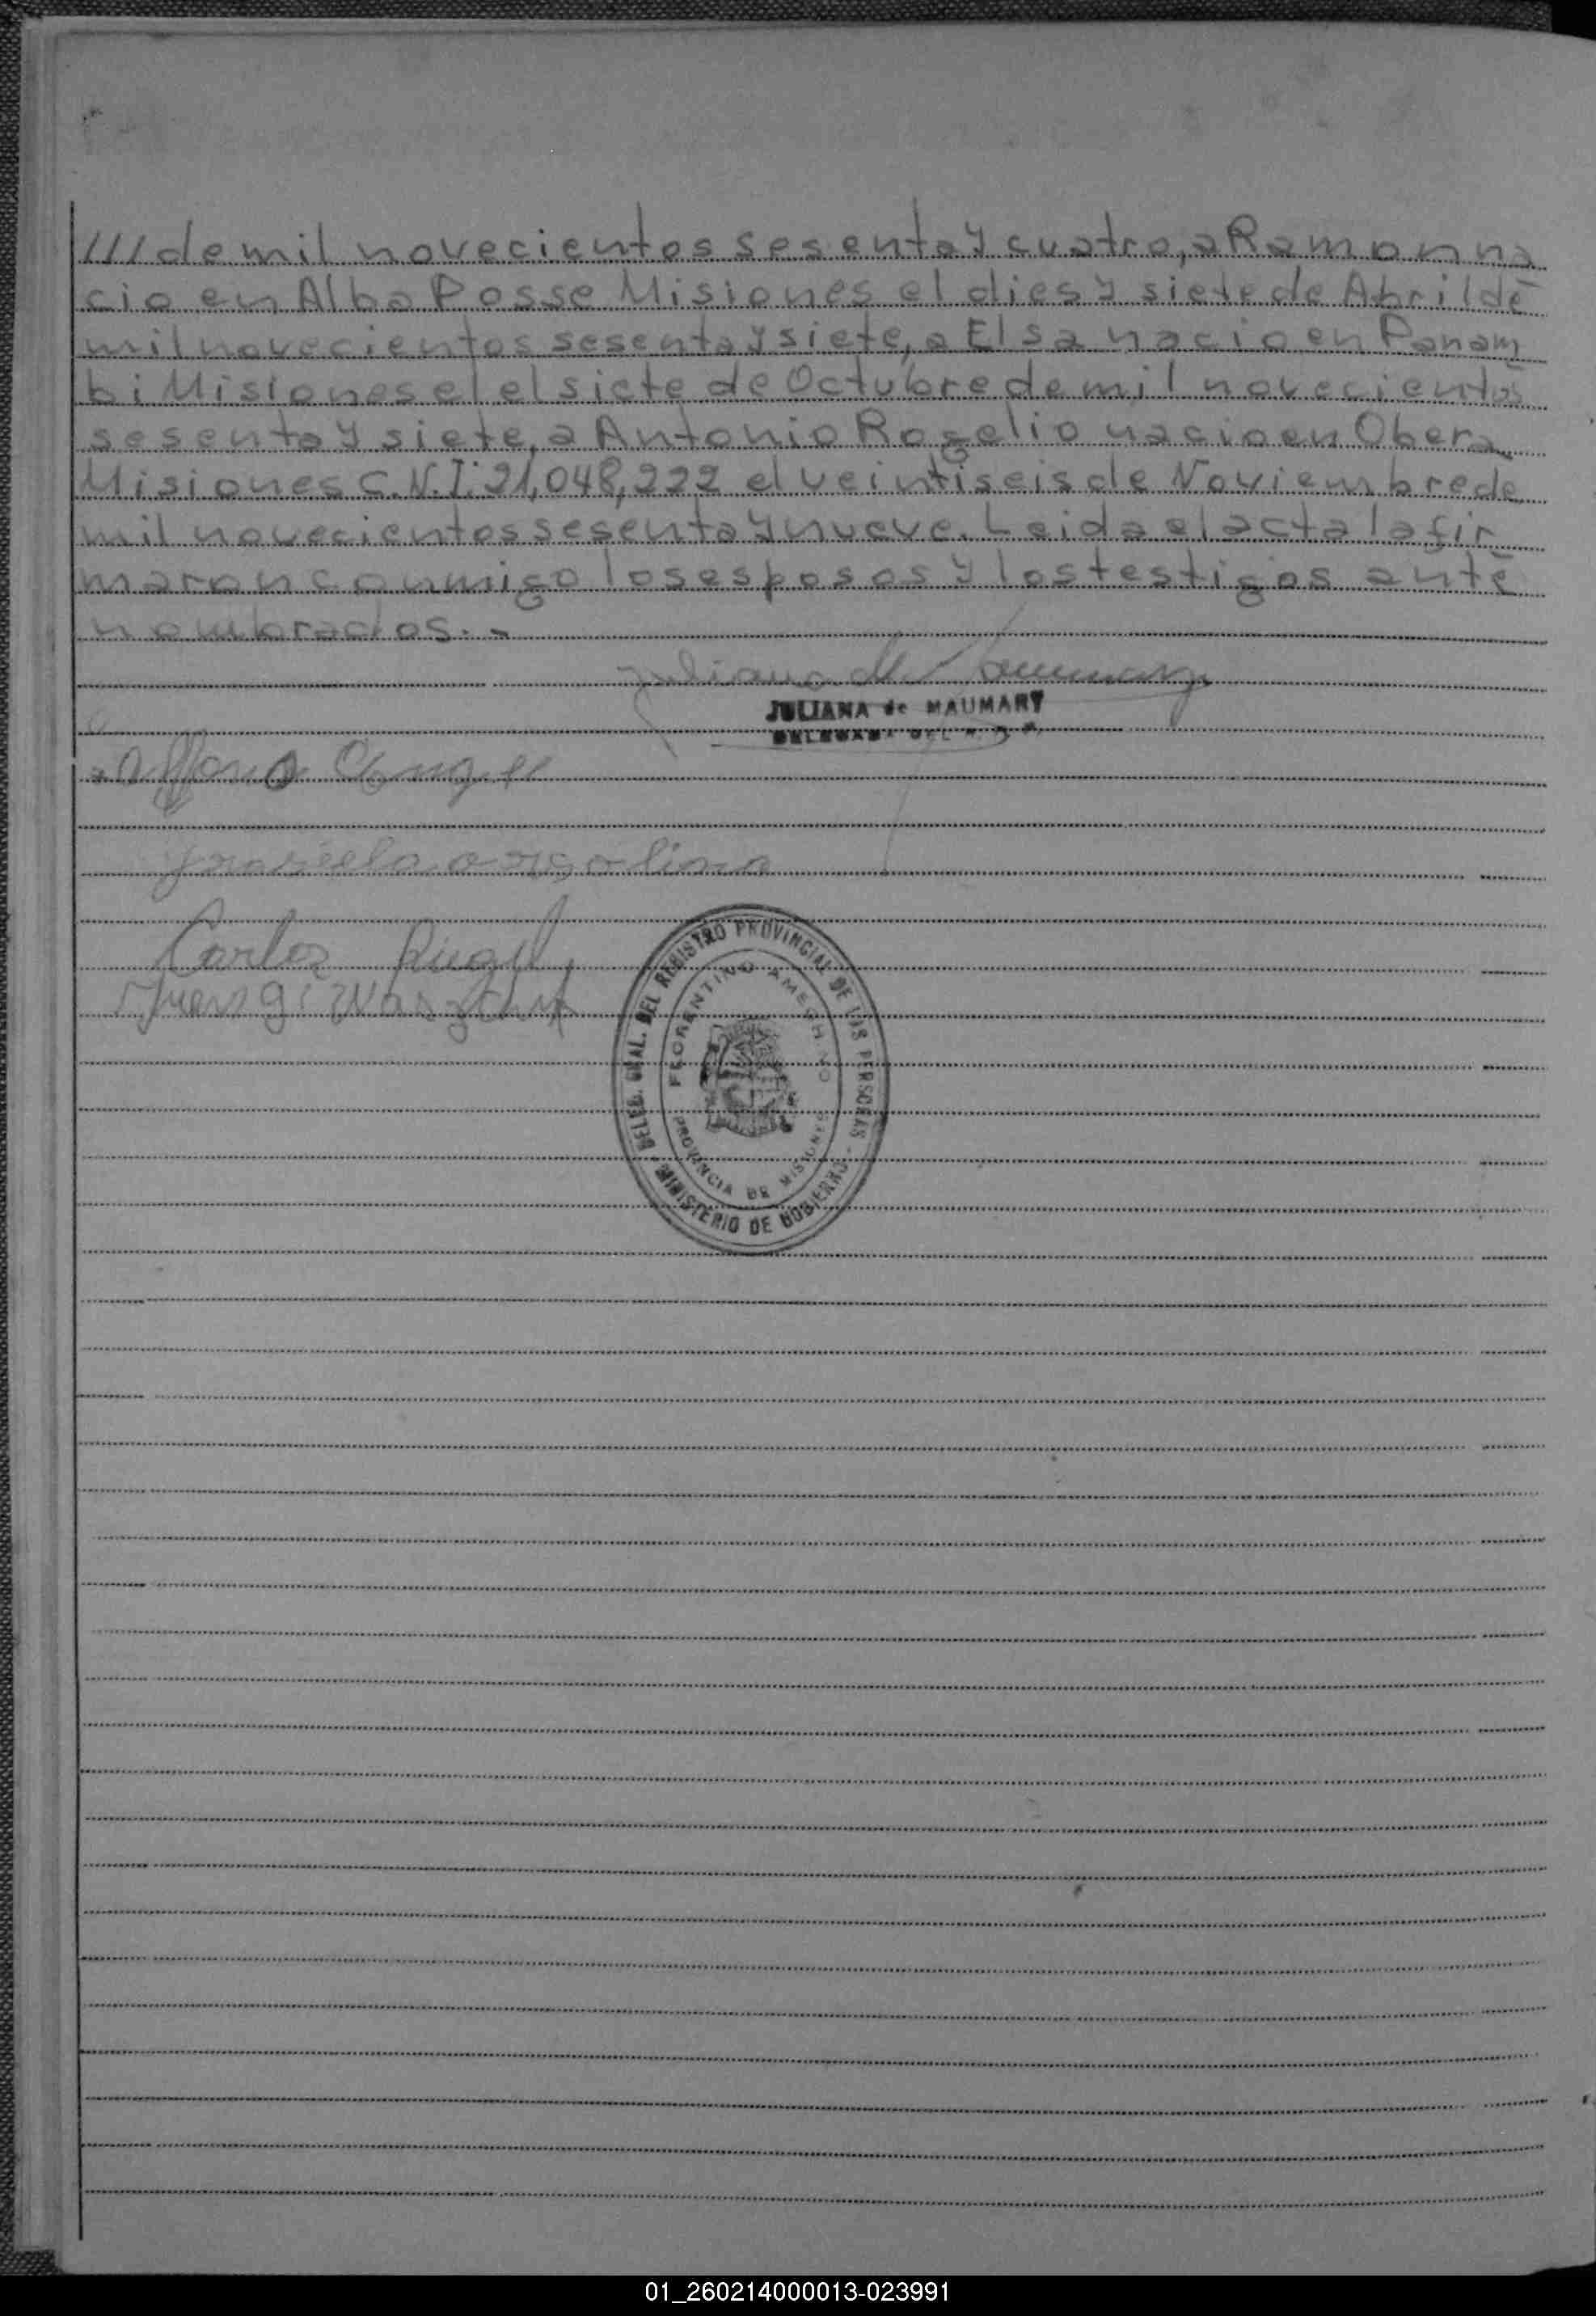 /// de mil novecientos sesenta y cuatro, a Ramon na
cio en Alba Posse Misiones el dies y siete de Abril de
mil novecientos sesenta y siete, a Elsa nacio en Panam
bi Misiones el el siete de Octubre de mil novecientos
sesenta y siete, a Antonio Rogelio nacio en Obera
Misiones C.N.I. 21,048,222 el veintiseis de Noviembre de
mil novecientos sesenta y nueve. Leida el acta la fir
maron conmigo los esposos y los testigos ante
nombrados.-
Juliana de
JULIANA de MAUMARY
Carlos
DELEG. GRAL. DEL REGISTRO PROVINCIAL DE LAS PERSONAS
MINISTERIO DE GOBIERNO
PROVINCIA DE MISIONES
01_260214000013-023991